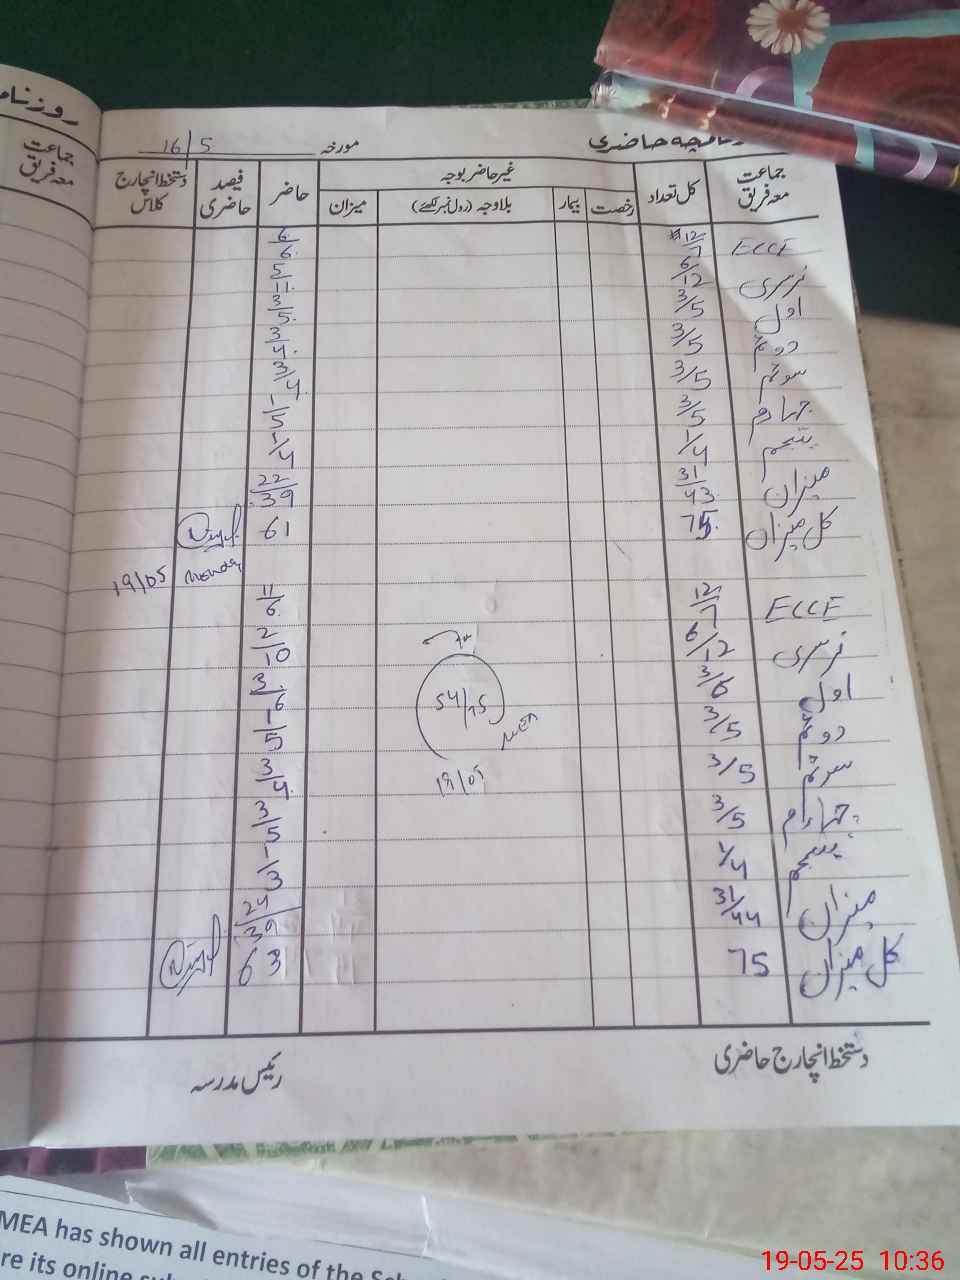 روزنام
جماعت
معہ فریق
مورخہ 16/5
جماعت معہ فریق کل تعداد غیر حاضر بوجہ حاضر فیصد حاضری دستخط انچارج کلاس
رخصت بیمار بلاوجہ (رول نمبر لکھئے) میزان
ECCE 12/7 6/6
نرسری 6/12 5/11
اول 3/5 3/5
دوئم 3/5 3/4
سوئم 3/5 3/4
چہارم 3/5 1/5
پنجم 1/4 1/4
میزان 31/43 22/39
کل میزان 75 61
19/05 Monday
ECCE 12/7 11/6
نرسری 6/12 2/10
اول 3/6 3/6
دوئم 3/5 1/5
سوئم 3/5 3/4
چہارم 3/5 3/5
پنجم 1/4 1/3
میزان 31/44 24/39
کل میزان 75 63
54/75
MEA
19/05
دستخط انچارج حاضری
رئیس مدرسہ
MEA has shown all entries of the Sch
re its online sub
19-05-25 10:36